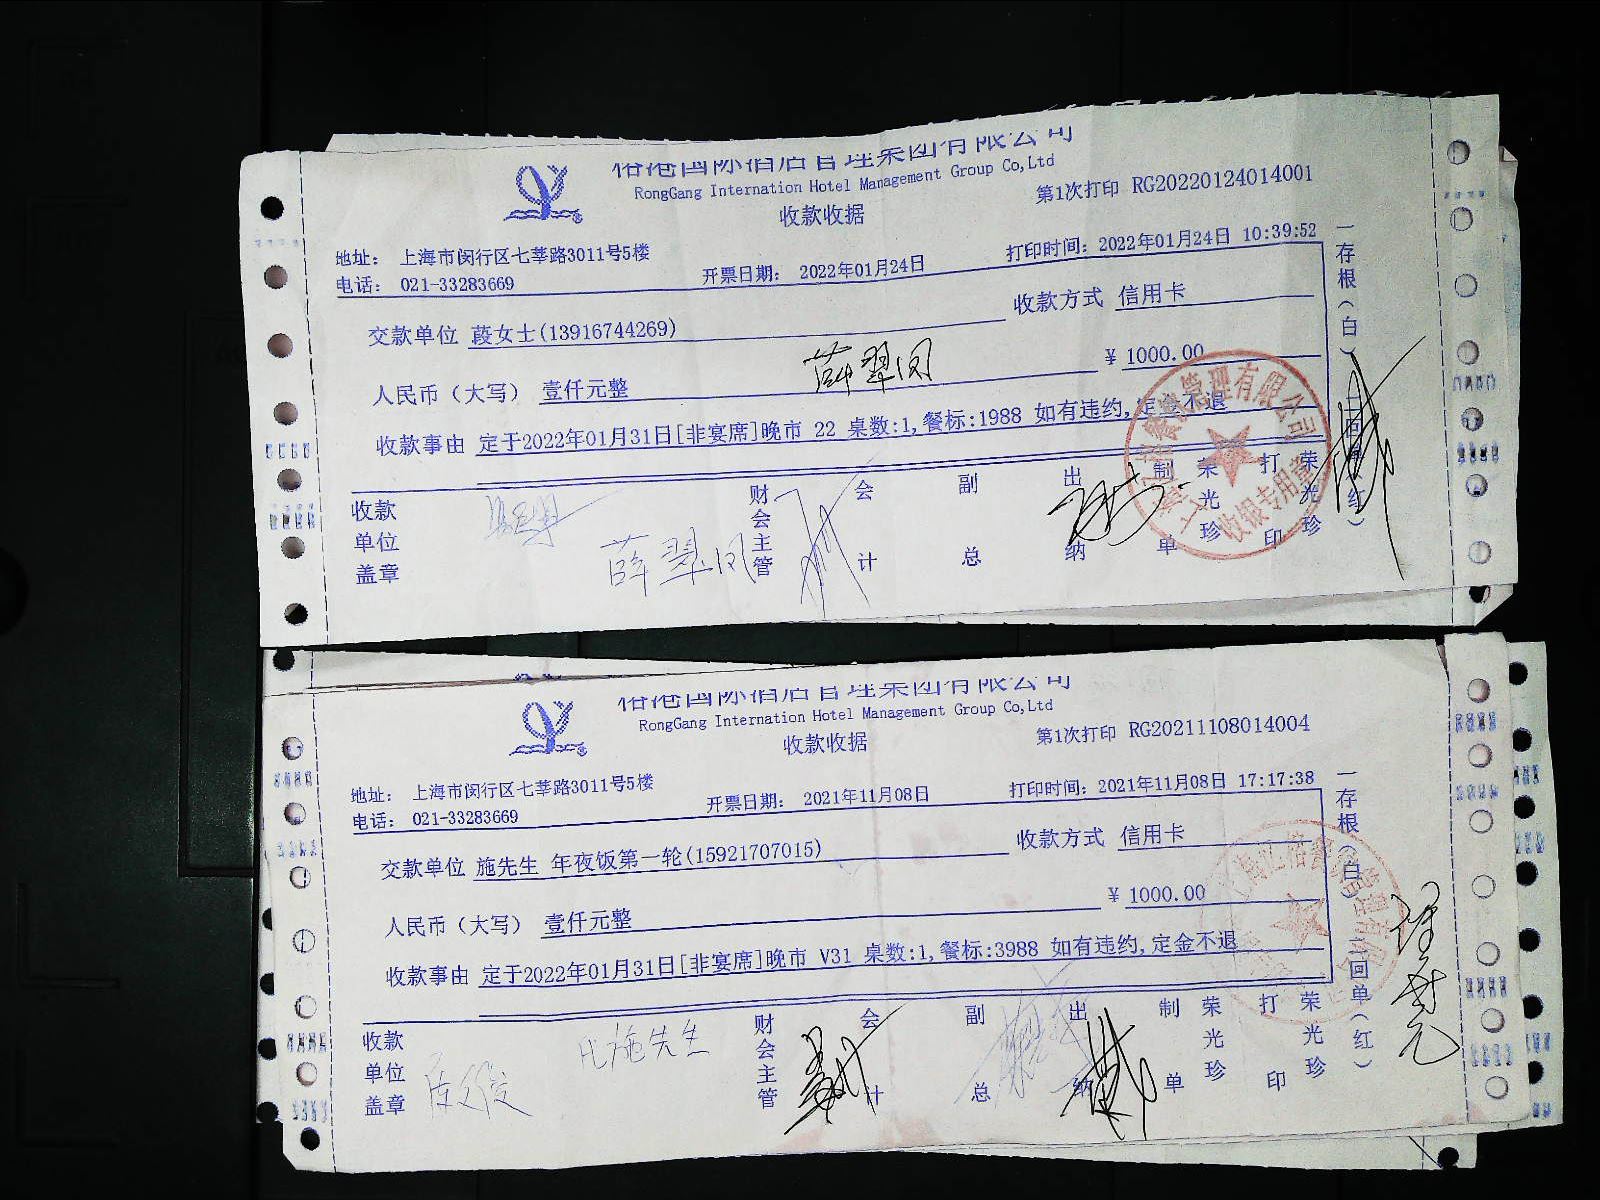 裕港国际酒店管理集团有限公司
RongGang Internation Hotel Management Group Co,Ltd
收款收据
第1次打印 RG20220124014001
地址： 上海市闵行区七莘路3011号5楼
电话： 021-33283669
开票日期： 2022年01月24日
打印时间：2022年01月24日 10:39:52
交款单位 葭女士(13916744269)
收款方式 信用卡
人民币（大写） 壹仟元整
薛翠凤
¥ 1000.00
收款事由 定于2022年01月31日[非宴席]晚市 22 桌数:1,餐标:1988 如有违约,定金不退
收款单位盖章
薛翠凤
财会主管
会计
副总
出纳
制单
荣光珍
打印
荣光珍
一存根（白）二回单（红）
收银专用章
裕港国际酒店管理集团有限公司
RongGang Internation Hotel Management Group Co,Ltd
收款收据
第1次打印 RG20211108014004
地址： 上海市闵行区七莘路3011号5楼
电话： 021-33283669
开票日期： 2021年11月08日
打印时间：2021年11月08日 17:17:38
交款单位 施先生 年夜饭第一轮(15921707015)
收款方式 信用卡
¥ 1000.00
人民币（大写） 壹仟元整
收款事由 定于2022年01月31日[非宴席]晚市 V31 桌数:1,餐标:3988 如有违约,定金不退
收款单位盖章
施先生
财会主管
会计
副总
出纳
制单
荣光珍
打印
荣光珍
一存根（白）二回单（红）